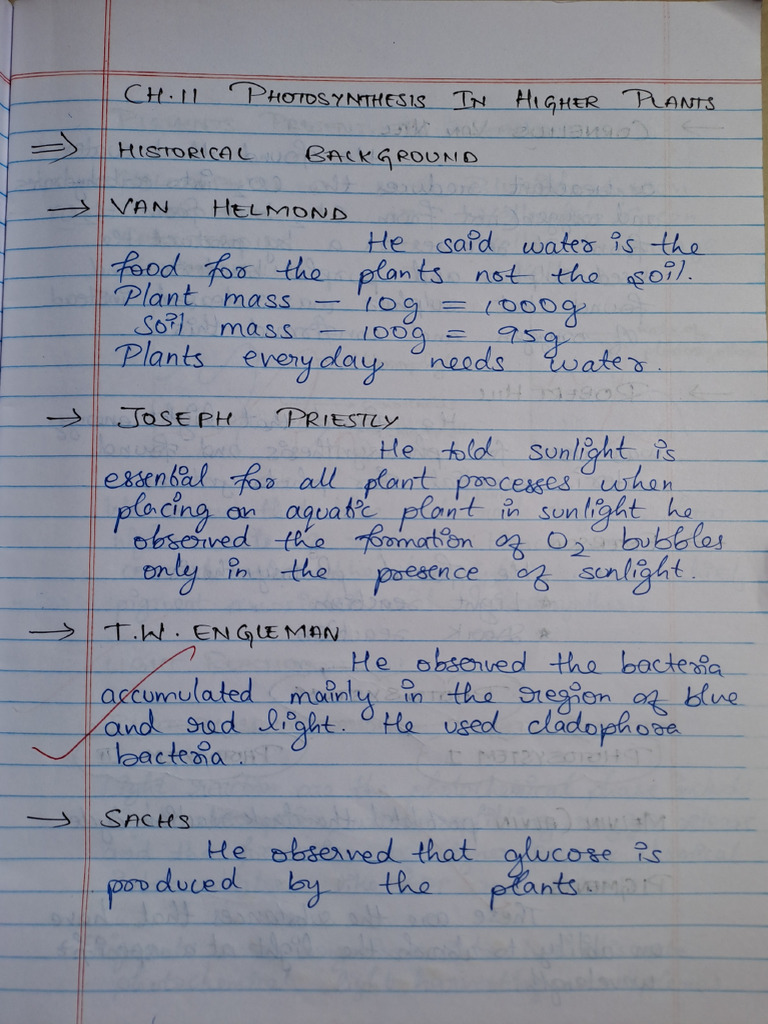 CH.11 PHOTOSYNTHESIS IN HIGHER PLANTS
⇒ HISTORICAL BACKGROUND
→ VAN HELMOND
He said water is the
food for the plants not the soil.
Plant mass – 10g = 1000g
Soil mass – 100g = 95g
Plants everyday needs water.
→ JOSEPH PRIESTLY
He told sunlight is
essential for all plant processes when
placing on aquatic plant in sunlight he
observed the formation of O2 bubbles
only in the presence of sunlight.
→ T.W. ENGLEMAN
He observed the bacteria
accumulated mainly in the region of blue
and red light. He used cladophora
bacteria.
→ SACHS
He observed that glucose is
produced by the plants.